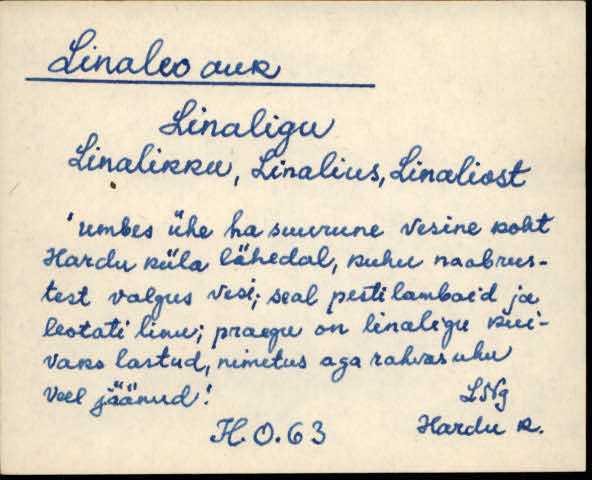 Linaleo auk
Linaligu
Linalikku, Linalius, Linaliost
'umbes ühe ha suurune vesine koht
Hardu küla lähedal, kuhu naabrus-
test valgus vesi; seal pesti lambaid ja
leotati linu; praegu on linaligu kui-
vaks lastud, nimetus aga rahvas uhu
veel jäänud!
LNg
H.O.63 Hardu k.